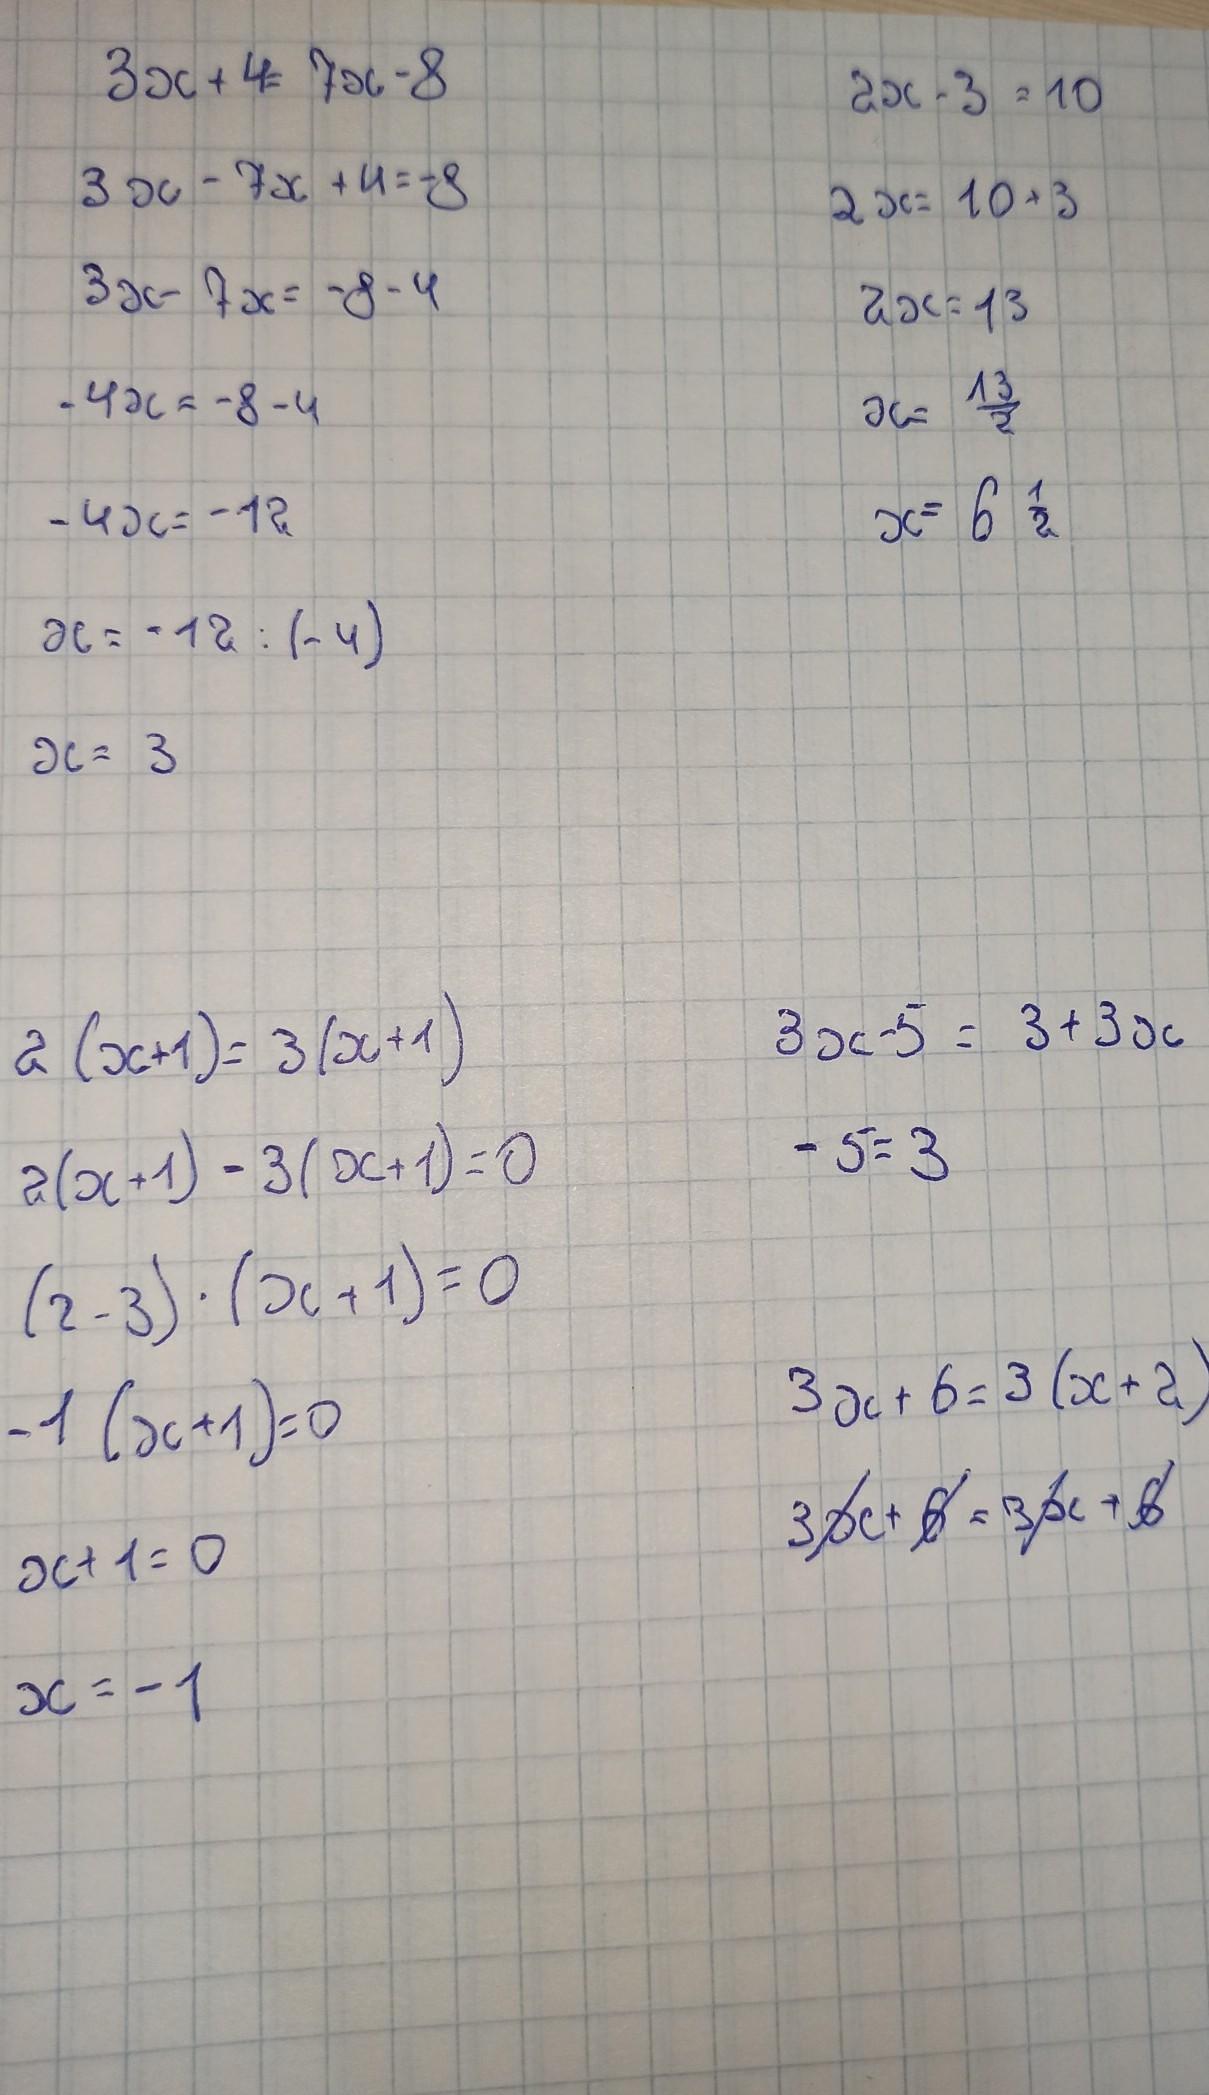 3x+4= 7x-8
3x-7x+4=-8
3x- 7x= -8-4
-4x= -8-4
-4x= -12
x= -12:(-4)
x= 3
2x-3 =10
2x= 10+3
2x=13
x= 13/2
x= 6 1/2
2(x+1)= 3(x+1)
2(x+1)-3(x+1)=0
(2-3)·(x+1)=0
-1(x+1)=0
x+1=0
x=-1
3x-5= 3+3x
-5=3
3x+6=3(x+2)
3x+6=3x+6